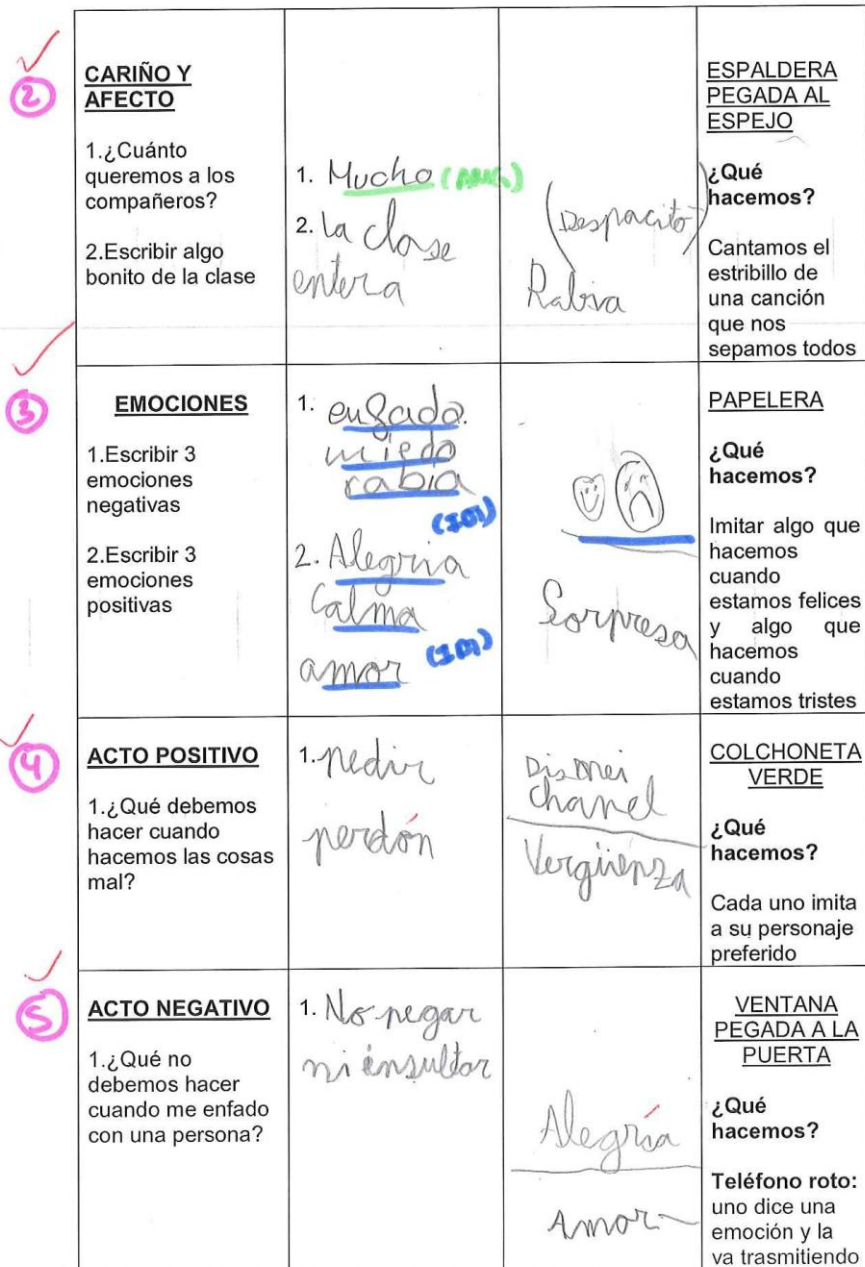 2
CARIÑO Y
AFECTO
1.¿Cuánto
queremos a los
compañeros?
2.Escribir algo
bonito de la clase
1. Mucho
2. la clase
entera
(Despacito)
Rabia
ESPALDERA
PEGADA AL
ESPEJO
¿Qué
hacemos?
Cantamos el
estribillo de
una canción
que nos
sepamos todos
3
EMOCIONES
1.Escribir 3
emociones
negativas
2.Escribir 3
emociones
positivas
1. enfado.
miedo
rabia
2. Alegria
Calma
amor
Sorpresa
PAPELERA
¿Qué
hacemos?
Imitar algo que
hacemos
cuando
estamos felices
y algo que
hacemos
cuando
estamos tristes
4
ACTO POSITIVO
1.¿Qué debemos
hacer cuando
hacemos las cosas
mal?
1. pedir
perdón
Disnei
chanel
Vergüenza
COLCHONETA
VERDE
¿Qué
hacemos?
Cada uno imita
a su personaje
preferido
5
ACTO NEGATIVO
1.¿Qué no
debemos hacer
cuando me enfado
con una persona?
1. No pegar
ni insultar
Alegría
Amor
VENTANA
PEGADA A LA
PUERTA
¿Qué
hacemos?
Teléfono roto:
uno dice una
emoción y la
va trasmitiendo